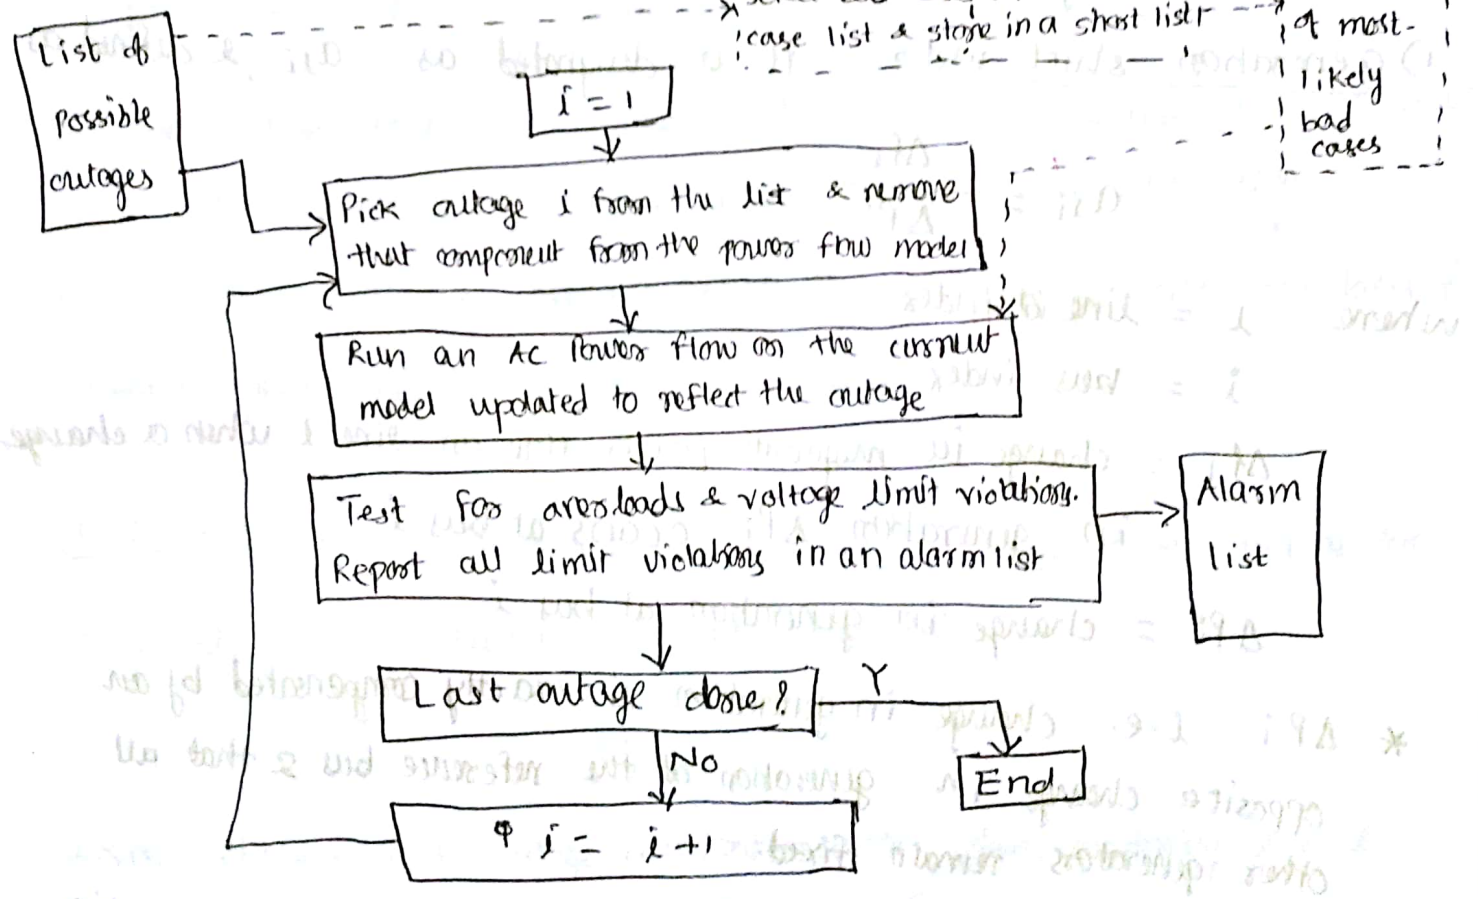 List of
possible
outages
case list & store in a short list
of most-
likely
bad
cases
i = 1
Pick outage i from the list & remove
that component from the power flow model
Run an AC Power flow on the current
model updated to reflect the outage
Test for overloads & voltage limit violations.
Report all limit violations in an alarm list
Alarm
list
Last outage done?
Y
No
End
i = i +1